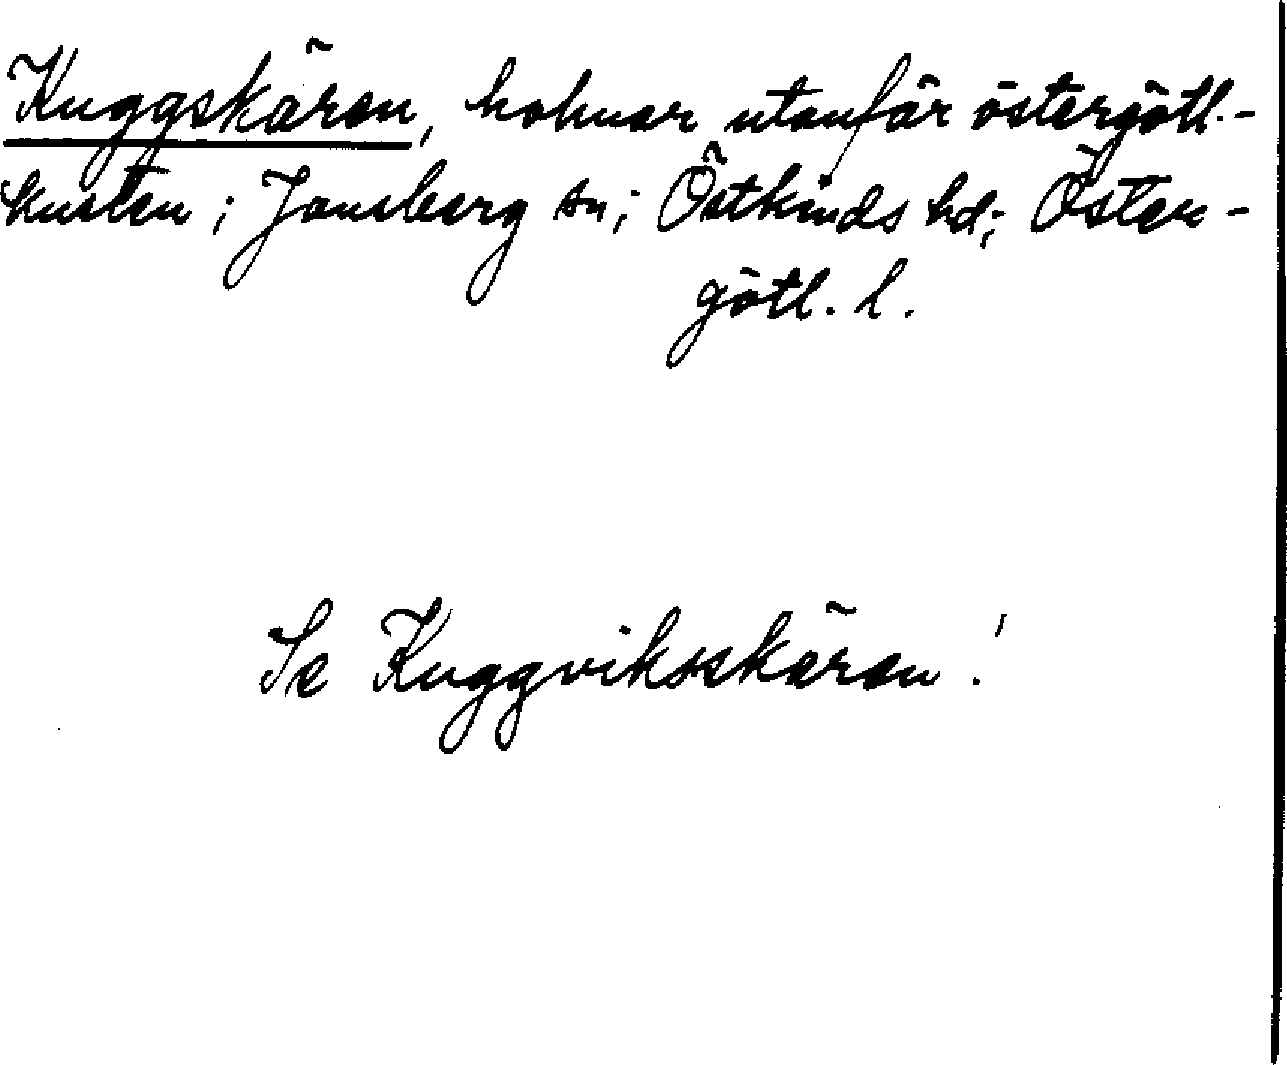 Kuggskären, holmar utanför östergötl.-
kusten; Jonsberg sn; Östkinds hd; Öster-
götl. l.
Se Kuggviksskären!